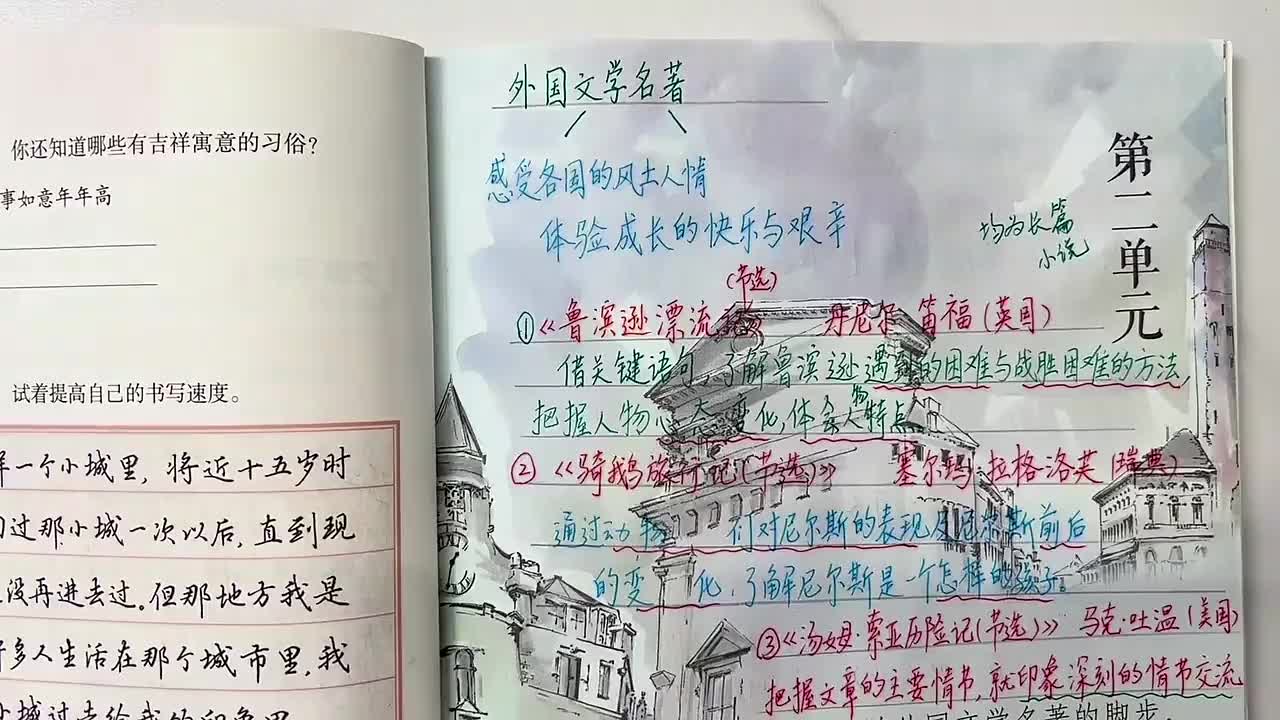 你还知道哪些有吉祥寓意的习俗?
事如意年年高
试着提高自己的书写速度。
一个小城里,将近十五岁时
过那小城一次以后,直到现
没再进去过。但那地方我是
多人生活在那个城市里,我
外国文学名著
感受各国的风土人情
体验成长的快乐与艰辛
第二单元
均为长篇
小说
(节选)
①《鲁滨逊漂流记》 丹尼尔·笛福(英国)
借关键语句,了解鲁滨逊遇到的困难与战胜困难的方法,
把握人物心态变化,体会人物特点。
②《骑鹅旅行记(节选)》 塞尔玛·拉格洛芙(瑞典)
通过动物们对尼尔斯的表现及尼尔斯前后
的变化,了解尼尔斯是一个怎样的孩子。
③《汤姆·索亚历险记(节选)》 马克·吐温(美国)
把握文章的主要情节,就印象深刻的情节交流
外国文学名著的脚步